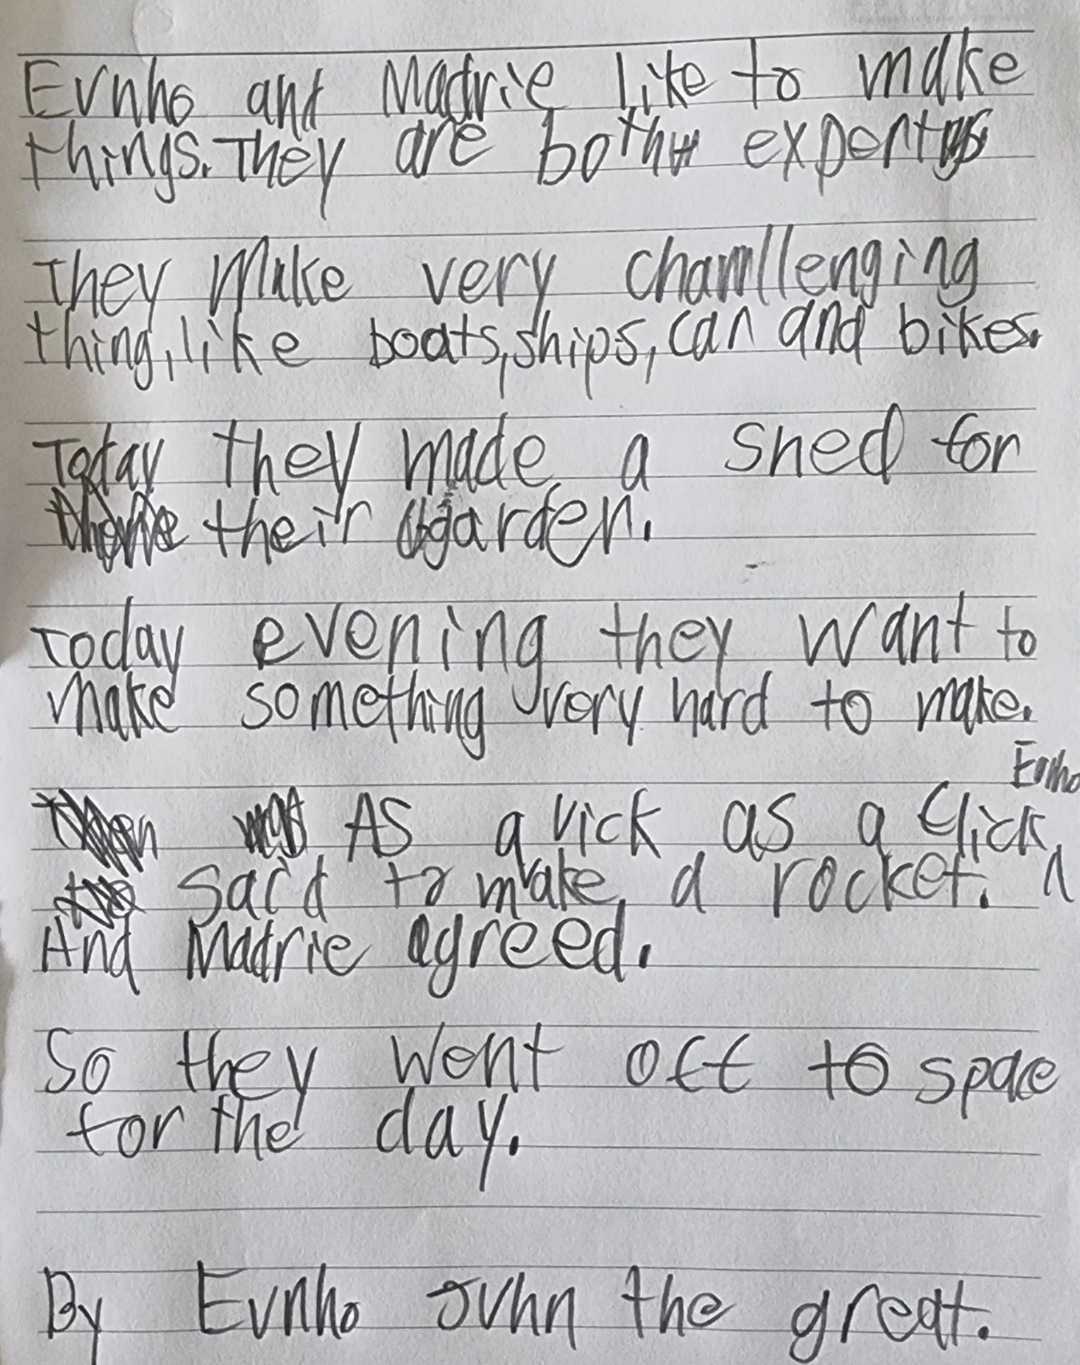 Evnho and Madrie like to make
things. They are both experts
They Make very chamllenging
thing, like boats, ships, car and bikes.
Today they made a shed for
their garden.
Today evening they want to
make something very hard to make.
Evnho
As a vick as a Click,
said to make a rocket.
And Madrie agreed.
So they went off to space
for the day.
By Evnho Juhn the great.